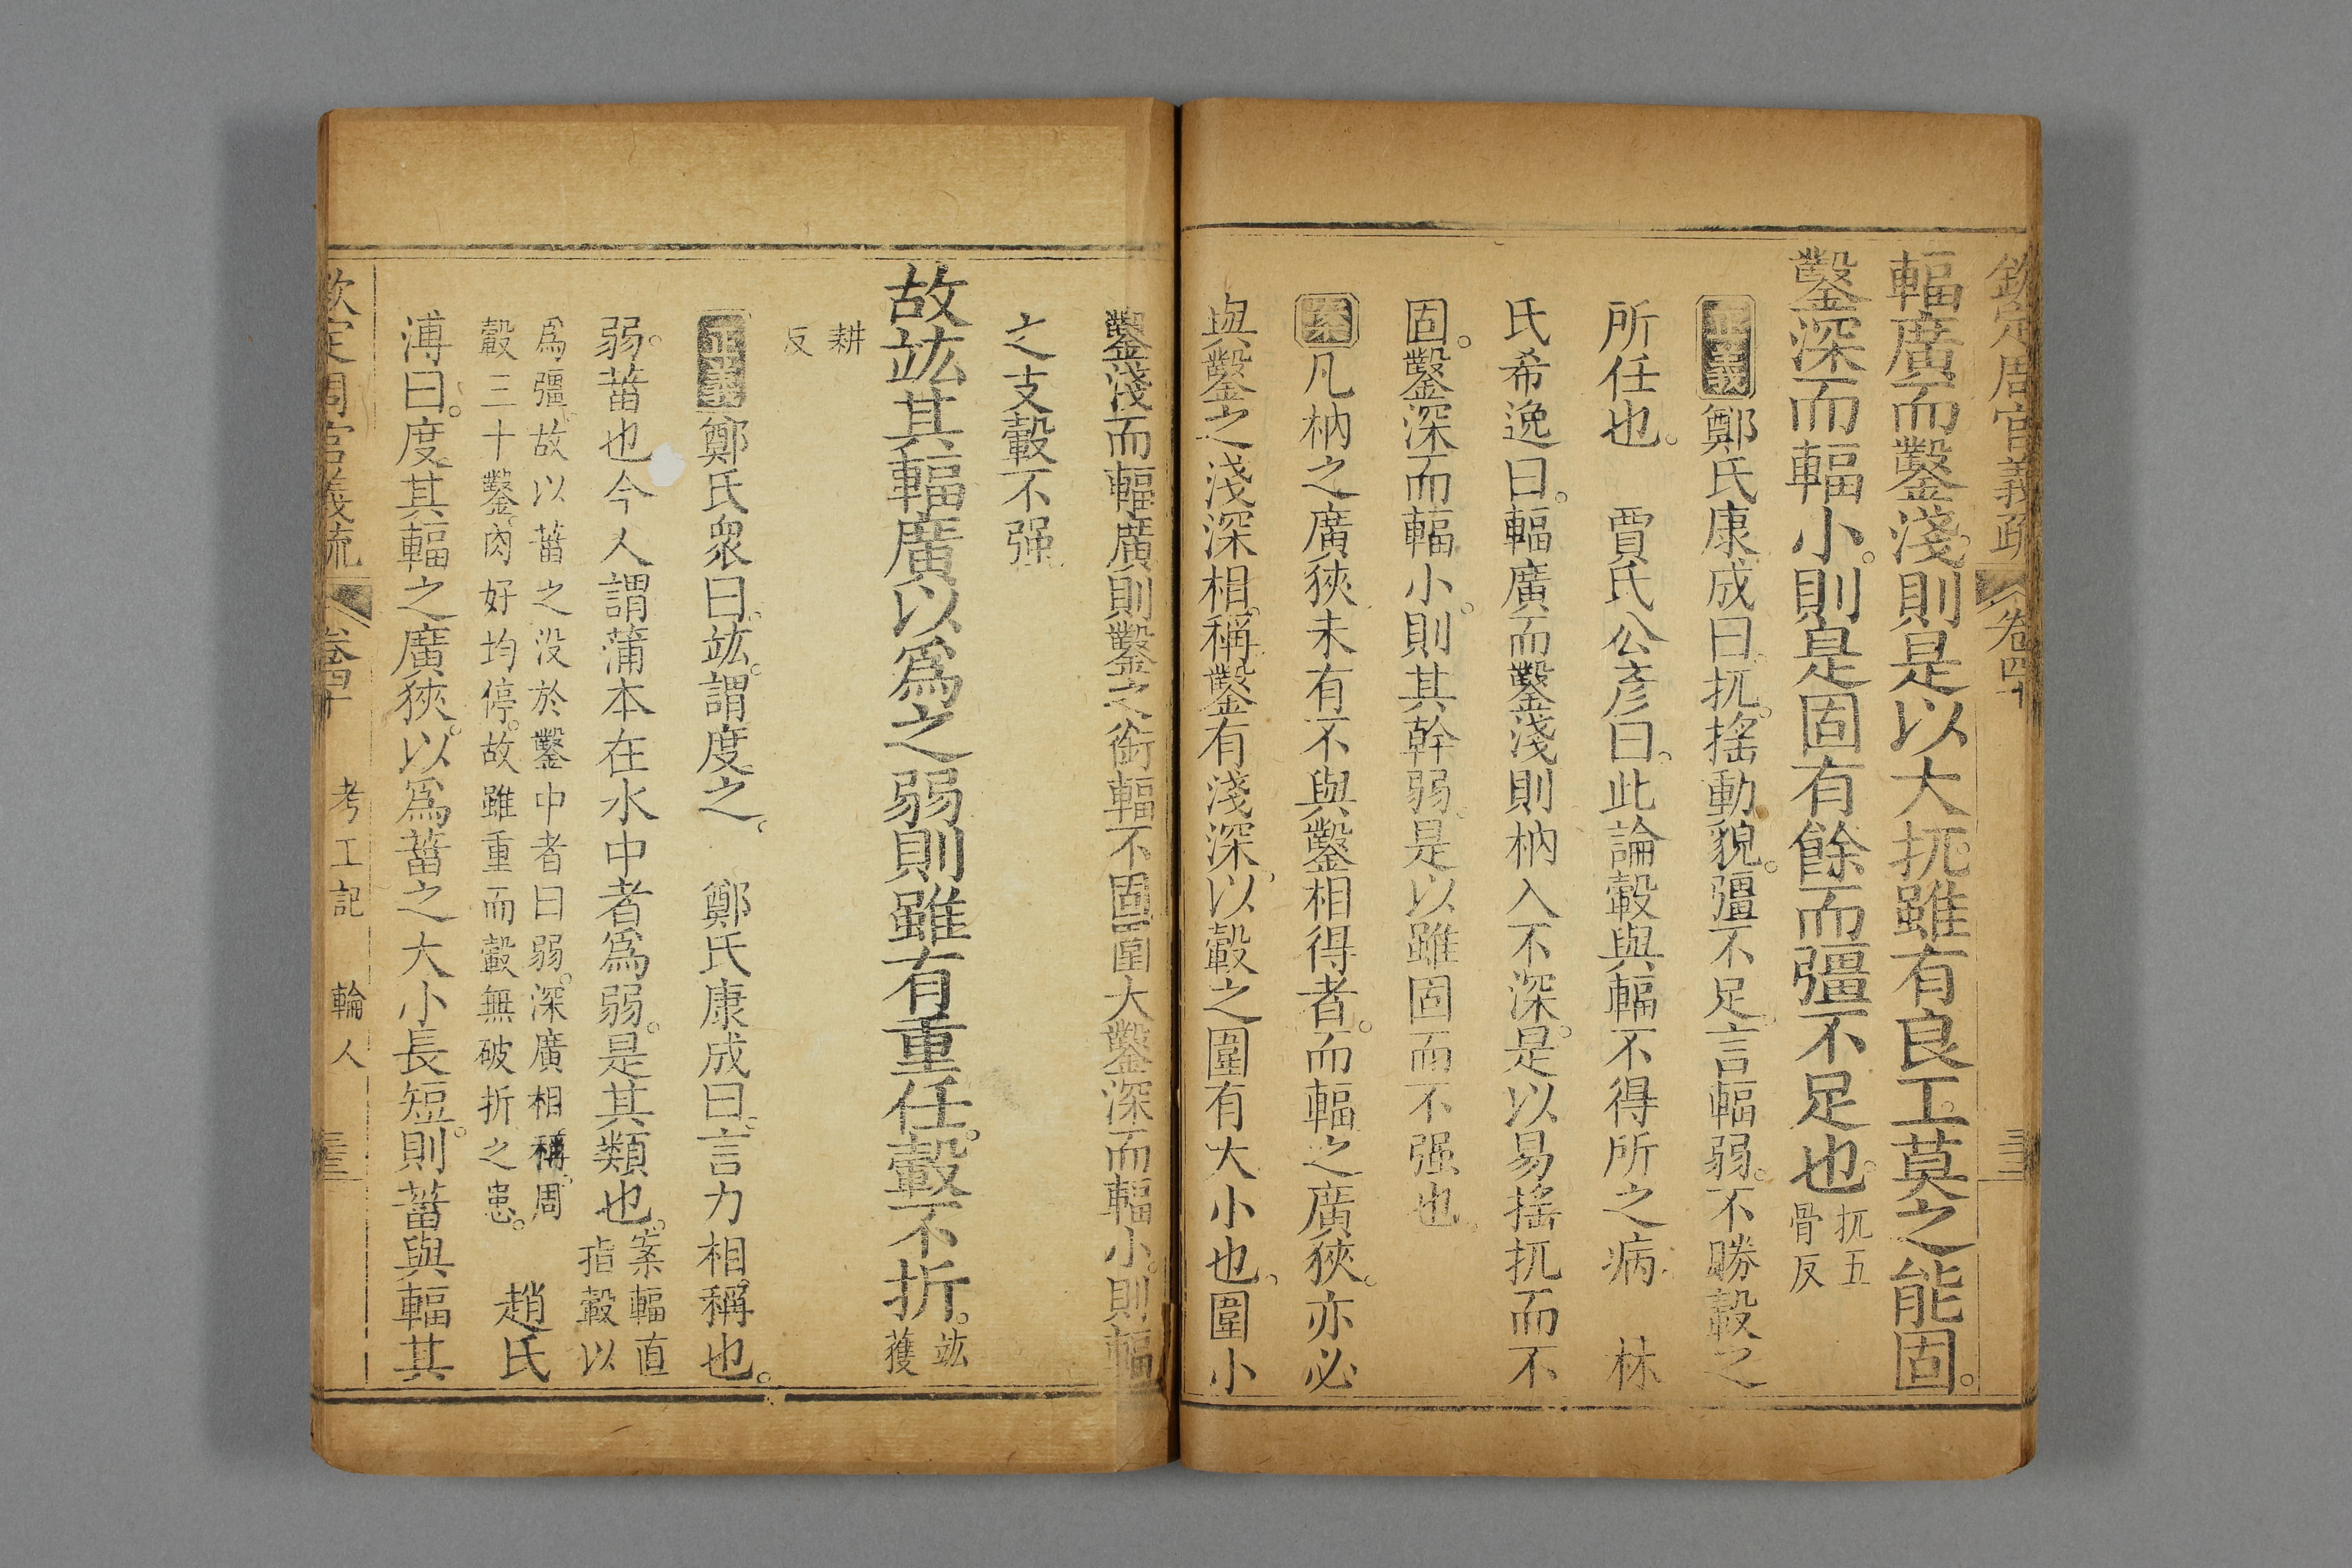 欽定周官義疏 卷四十
輻廣而鑿淺則是以大扤雖有良工莫之能固。
鑿深而輻小。則是固有餘而彊不足也。扤五骨反
正義鄭氏康成曰。扤。搖動貌。彊不足。言輻弱。不勝轂之
所任也。 賈氏公彥曰。此論轂與輻不得所之病 林
氏希逸曰。輻廣而鑿淺則枘入不深。是以易搖扤而不
固。鑿深而輻小。則其幹弱。是以雖固而不强也。
案凡枘之廣狹未有不與鑿相得者。而輻之廣狹。亦必
與鑿之淺深相稱。鑿有淺深。以轂之圍有大小也。圍小
鑿淺而輻廣則鑿之銜輻不固。圍大鑿深而輻小。則輻
之支轂不强。
故竑其輻廣以爲之弱則雖有重任。轂不折。竑獲
耕反
正義鄭氏衆曰。竑。謂度之。 鄭氏康成曰。言力相稱也。
弱。菑也今人謂蒲本在水中者爲弱。是其類也。案輻直指轂以
爲彊。故以菑之没於鑿中者曰弱。深廣相稱。周
轂三十鑿。肉好均停。故雖重而轂無破折之患。 趙氏
溥曰。度其輻之廣狹。以爲菑之大小長短。則菑與輻其
欽定周官義疏 卷四十 考工記 輪人